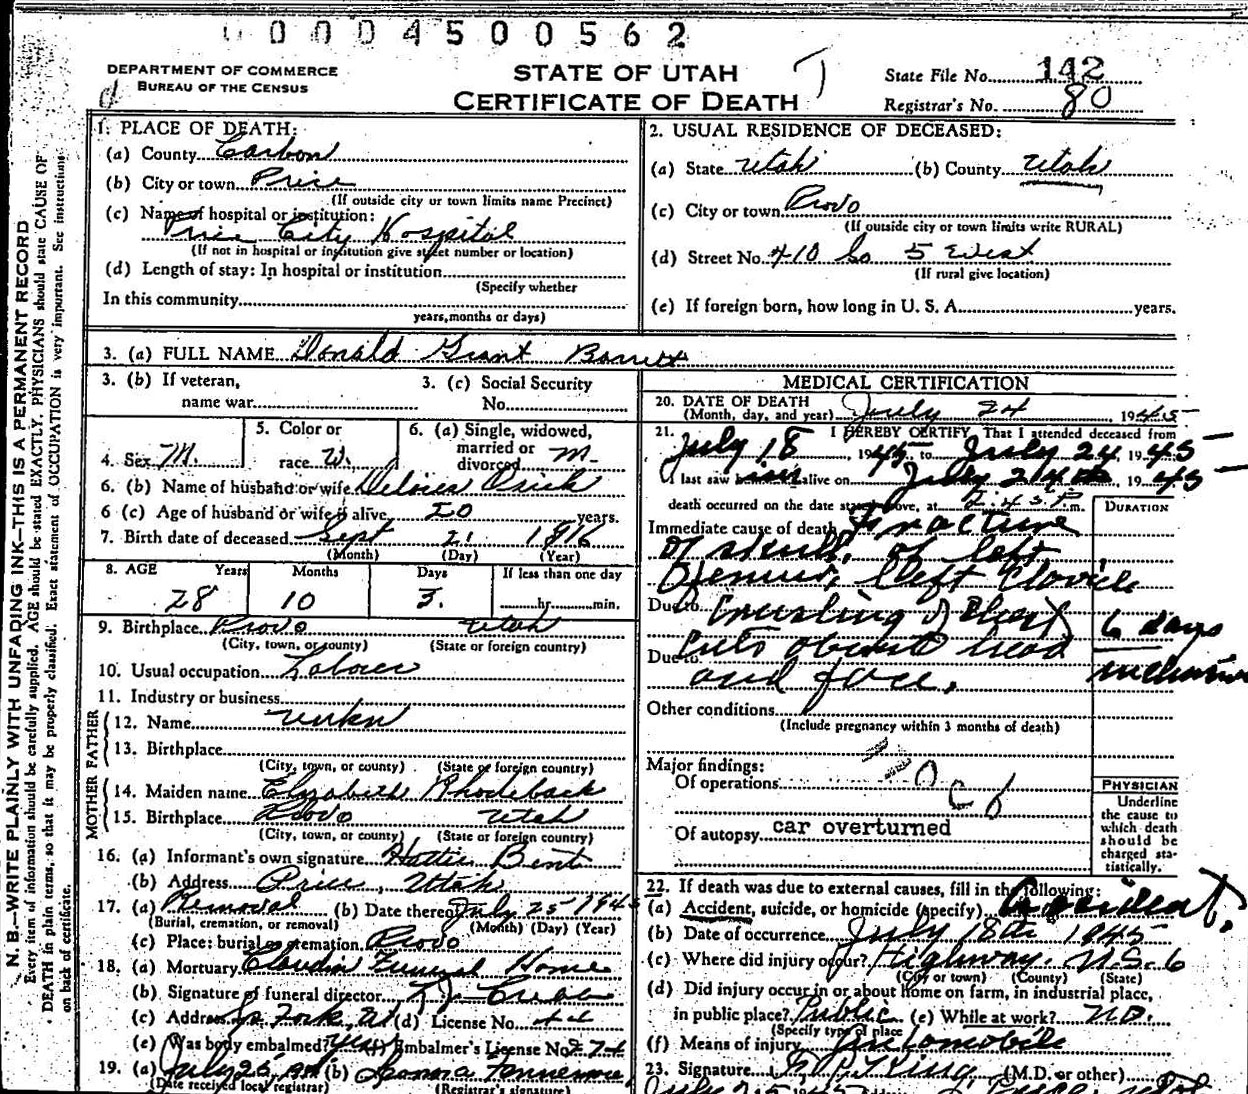 0 0 0 4 5 0 0 5 6 2
DEPARTMENT OF COMMERCE
BUREAU OF THE CENSUS
STATE OF UTAH
CERTIFICATE OF DEATH
State File No. 142
Registrar's No. 80
N. B.—WRITE PLAINLY WITH UNFADING INK—THIS IS A PERMANENT RECORD
Every item of information should be carefully supplied. AGE should be stated EXACTLY. PHYSICIANS should state CAUSE OF
DEATH in plain terms, so that it may be properly classified. Exact statement of OCCUPATION is very important. See instructions
on back of certificate.
1. PLACE OF DEATH:
(a) County Carbon
(b) City or town Price
(If outside city or town limits name Precinct)
(c) Name of hospital or institution:
Price City Hospital
(If not in hospital or institution give street number or location)
(d) Length of stay: In hospital or institution
(Specify whether
In this community
years, months or days)
2. USUAL RESIDENCE OF DECEASED:
(a) State Utah (b) County Utah
(c) City or town Provo
(If outside city or town limits write RURAL)
(d) Street No. 410 So 5 West
(If rural give location)
(e) If foreign born, how long in U. S. A. years.
3. (a) FULL NAME Donald Grant Barrett
3. (b) If veteran,
name war
3. (c) Social Security
No.
4. Sex M.
5. Color or
race W.
6. (a) Single, widowed,
married or
divorced M.
6. (b) Name of husband or wife
6 (c) Age of husband or wife if alive 20 years.
7. Birth date of deceased Sept 21 1916
(Month) (Day) (Year)
8. AGE Years Months Days If less than one day
28 10 3. hr. min.
9. Birthplace Provo Utah
(City, town, or county) (State or foreign country)
10. Usual occupation Laborer
11. Industry or business
FATHER
12. Name unkn
13. Birthplace
(City, town, or county) (State or foreign country)
MOTHER
14. Maiden name Elizabeth Rhodeback
15. Birthplace Provo Utah
(City, town, or county) (State or foreign country)
16. (a) Informant's own signature Hattie Bent
(b) Address Price, Utah
17. (a) Removal (b) Date thereof July 25 1945
(Burial, cremation, or removal) (Month) (Day) (Year)
(c) Place: burial or cremation Provo
18. (a) Mortuary Claudin Funeral Home
(b) Signature of funeral director
(c) Address Sp Fork, U (d) License No.
(e) Was body embalmed? yes (f) Embalmer's License No.
19. (a) July 26, (b)
(Date received local registrar) (Registrar's signature)
MEDICAL CERTIFICATION
20. DATE OF DEATH
(Month, day, and year) July 24 1945
21. I HEREBY CERTIFY, That I attended deceased from
July 18, 1945, to July 24, 1945
I last saw him alive on July 24th 1945
death occurred on the date stated above, at 2:45 P. m.
DURATION
Immediate cause of death Fracture
of skull, of left
Femur, left Clavicle
Due to Crushing of Chest
6 days
Due to Cuts about head
and face.
Other conditions
(Include pregnancy within 3 months of death)
Major findings:
Of operations
Of autopsy car overturned
PHYSICIAN
Underline
the cause to
which death
should be
charged sta-
tistically.
22. If death was due to external causes, fill in the following:
(a) Accident, suicide, or homicide (specify) Accident.
(b) Date of occurrence July 18th 1945
(c) Where did injury occur? Highway. U.S. 6
(City or town) (County) (State)
(d) Did injury occur in or about home on farm, in industrial place,
in public place? Public (e) While at work? no.
(Specify type of place)
(f) Means of injury Automobile
23. Signature (M.D. or other)